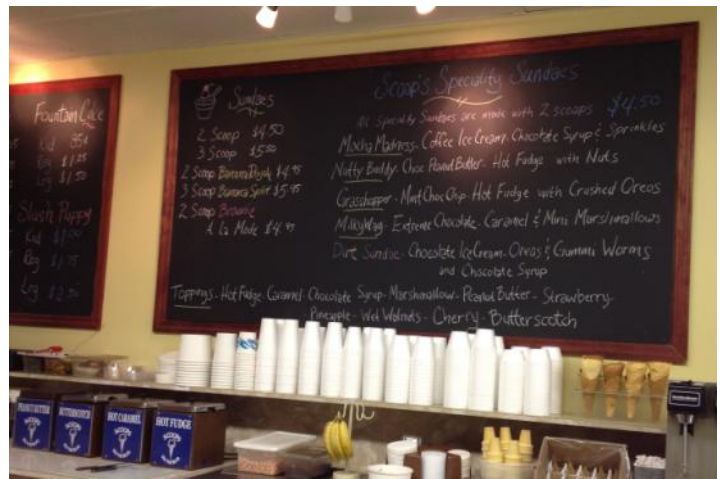 Fountain Coke
Kid 85¢
Reg $1.25
Lrg $1.50
Slush Puppy
Kid $1.00
Reg $1.75
Lrg $2.50
Sundaes
2 Scoop $4.50
3 Scoop $5.50
2 Scoop Banana Royale $4.95
3 Scoop Banana Split $5.95
2 Scoop Brownie
A La Mode $4.95
Scoop's Speciality Sundaes
All Speciality Sundaes are made with 2 scoops $4.50
Mocha Madness - Coffee Ice Cream - Chocolate Syrup & Sprinkles
Nutty Buddy - Choc Peanut Butter - Hot Fudge with Nuts
Grasshopper - Mint Choc Chip - Hot Fudge with Crushed Oreos
Milky Way - Extreme Chocolate - Caramel & Mini Marshmallows
Dirt Sundae - Chocolate Ice Cream - Oreos & Gummi Worms
and Chocolate Syrup
Toppings - Hot Fudge - Caramel Chocolate Syrup - Marshmallow - Peanut Butter - Strawberry -
Pineapple - Wet Walnuts - Cherry - Butterscotch
PEANUT BUTTER
BUTTERSCOTCH
HOT CARAMEL
HOT FUDGE